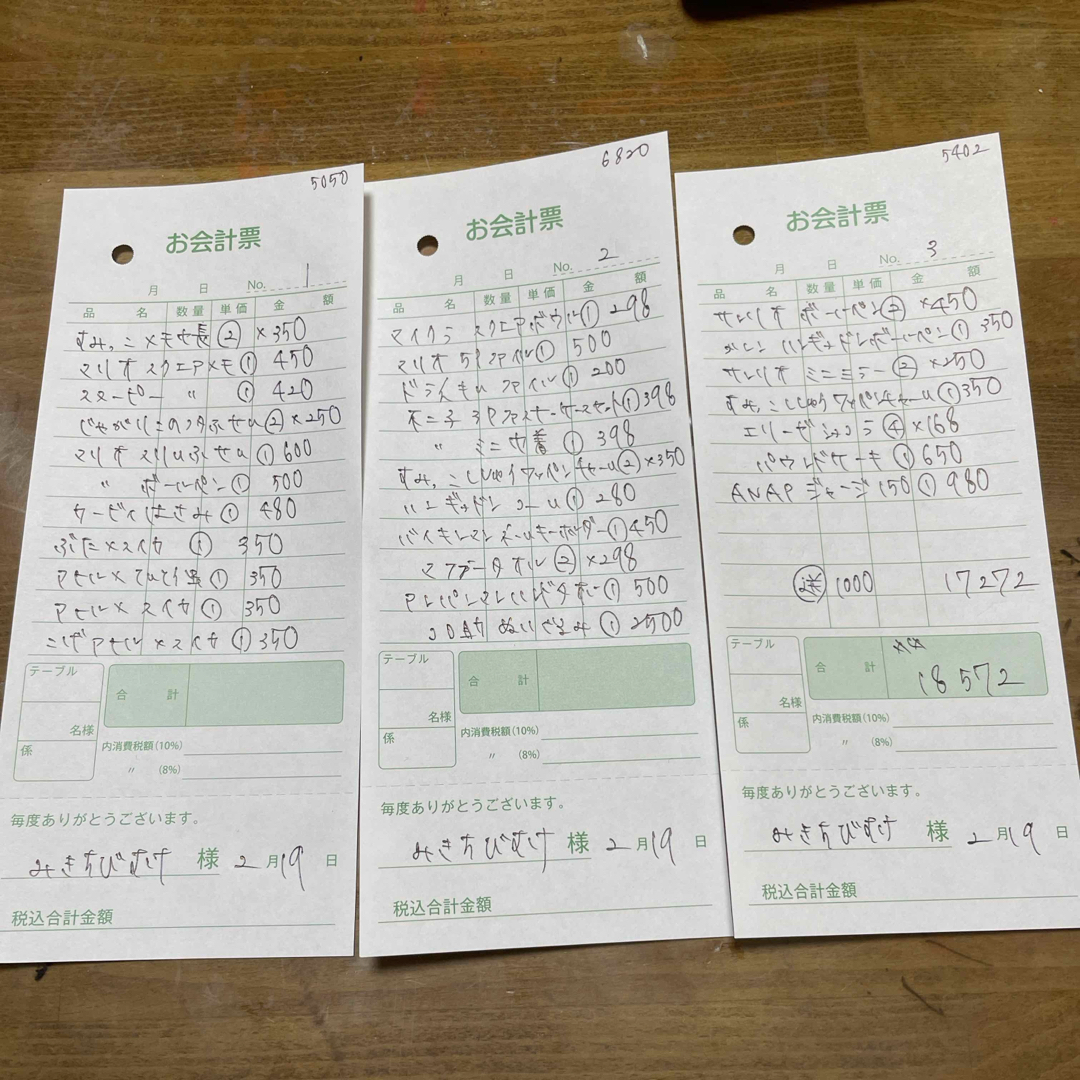 5050
お会計票
月 日 No. 1
品 名 数量 単価 金 額
すみっこメモ 長 ② ×350
マリオ スクエアメモ ① 450
スヌーピー 〃 ① 420
じゃがりこのフタふせん ② ×250
マリオ スリムふせん ① 600
〃 ボールペン ① 500
カービィはさみ ① 480
ぶた×スイカ ① 350
アヒル× ① 350
アヒル×スイカ ① 350
こげアヒル×スイカ ① 350
テーブル
合 計
名様
係
内消費税額(10%)
〃 (8%)
毎度ありがとうございます。
みきちびすけ 様 2月19日
税込合計金額
6820
お会計票
月 日 No. 2
品 名 数量 単価 金 額
マイクラ スクエアボウル ① 298
マリオ 5Pファイル ① 500
ドラえもん ファイル ① 200
3Pファスナーケースセット ① 398
〃 ミニ巾着 ① 398
すみっこししゅうワッペンチャーム ② ×350
ハンギョドン ① 280
バイキンマン キーホルダー ① 450
マフラータオル ② ×298
① 500
10点 ぬいぐるみ ① 2500
テーブル
合 計
名様
係
内消費税額(10%)
〃 (8%)
毎度ありがとうございます。
みきちびすけ 様 2月19日
税込合計金額
5402
お会計票
月 日 No. 3
品 名 数量 単価 金 額
サンリオ ボールペン ② ×450
ハンギョドンボールペン ① 350
サンリオ ミニミラー ② ×250
すみっこししゅうワッペンチャーム ① 350
エリーゼ ④ ×168
パウンドケーキ ① 650
ANAP ジャージ 150 ① 980
送 1000 17272
テーブル
合 計 18572
名様
係
内消費税額(10%)
〃 (8%)
毎度ありがとうございます。
みきちびすけ 様 2月19日
税込合計金額